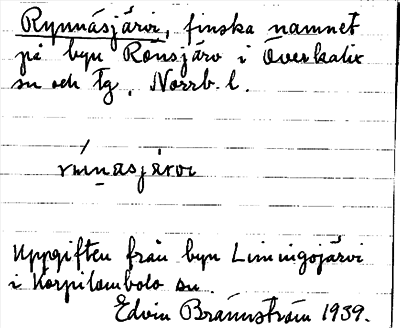 Rynnäsjärvi, finska namnet
på byn Rönsjärv i Överkalix
sn och tg, Norrb. l.
rynäsjärvi
Uppgiften från byn Liminggojärvi
i Korpilombolo sn.
Edvin Brännström 1939.